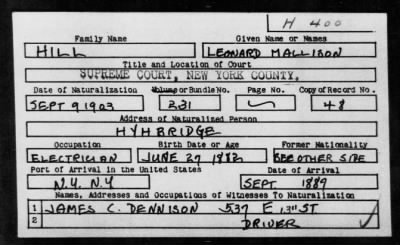 H 400
Family Name Given Name or Names
HILL LEONARD MALLISON
Title and Location of Court
SUPREME COURT, NEW YORK COUNTY.
Date of Naturalization Volume or Bundle No. Page No. Copy of Record No.
SEPT 9 1903 231 48
Address of Naturalized Person
HYHBRIDGE
Occupation Birth Date or Age Former Nationality
ELECTRICIAN JUNE 27 1882 SEE OTHER SIDE
Port of Arrival in the United States Date of Arrival
N.Y. N.Y SEPT 1889
Names, Addresses and Occupations of Witnesses To Naturalization
1 JAMES C. DENNISON 537 E 13" ST
2 DRIVER